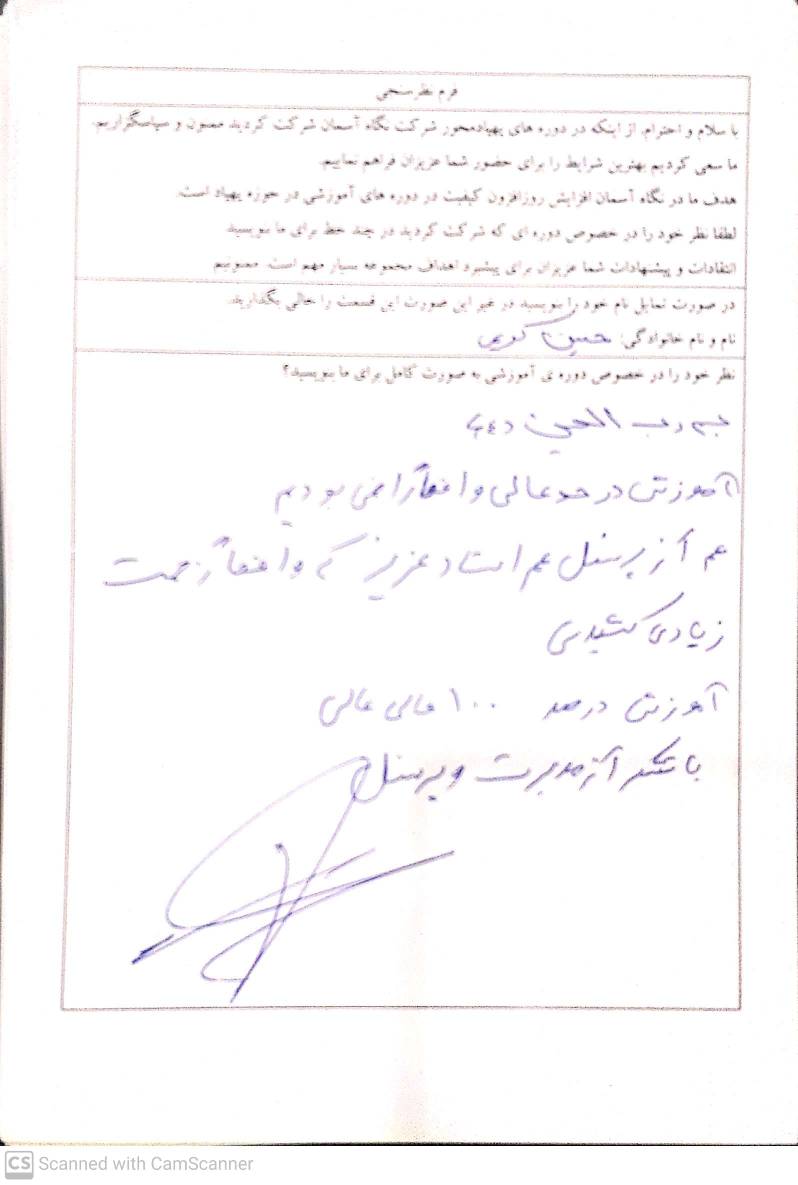 فرم نظرسنجی
با سلام و احترام، از اینکه در دوره های پهپادمحور شرکت نگاه آسمان شرکت کردید ممنون و سپاسگزاریم.
ما سعی کردیم بهترین شرایط را برای حضور شما عزیزان فراهم نماییم.
هدف ما در نگاه آسمان افزایش روزافزون کیفیت در دوره های آموزشی در حوزه پهپاد است.
لطفا نظر خود را در خصوص دوره ای که شرکت کردید در چند خط برای ما بنویسید.
انتقادات و پیشنهادات شما عزیزان برای پیشبرد اهداف مجموعه بسیار مهم است. ممنونیم
در صورت تمایل نام خود را بنویسید در غیر این صورت این قسمت را خالی بگذارید.
نام و نام خانوادگی: حسین
نظر خود را در خصوص دوره ی آموزشی به صورت کامل برای ما بنویسید؟
به رب الحسین
آموزش در حد عالی واقعاً راضی بودیم
هم از پرسنل هم استاد عزیز که واقعاً زحمت
زیادی کشیدن
آموزش درصد ۱۰۰ عالی عالی
با تشکر از مدیریت و پرسنل
CS Scanned with CamScanner